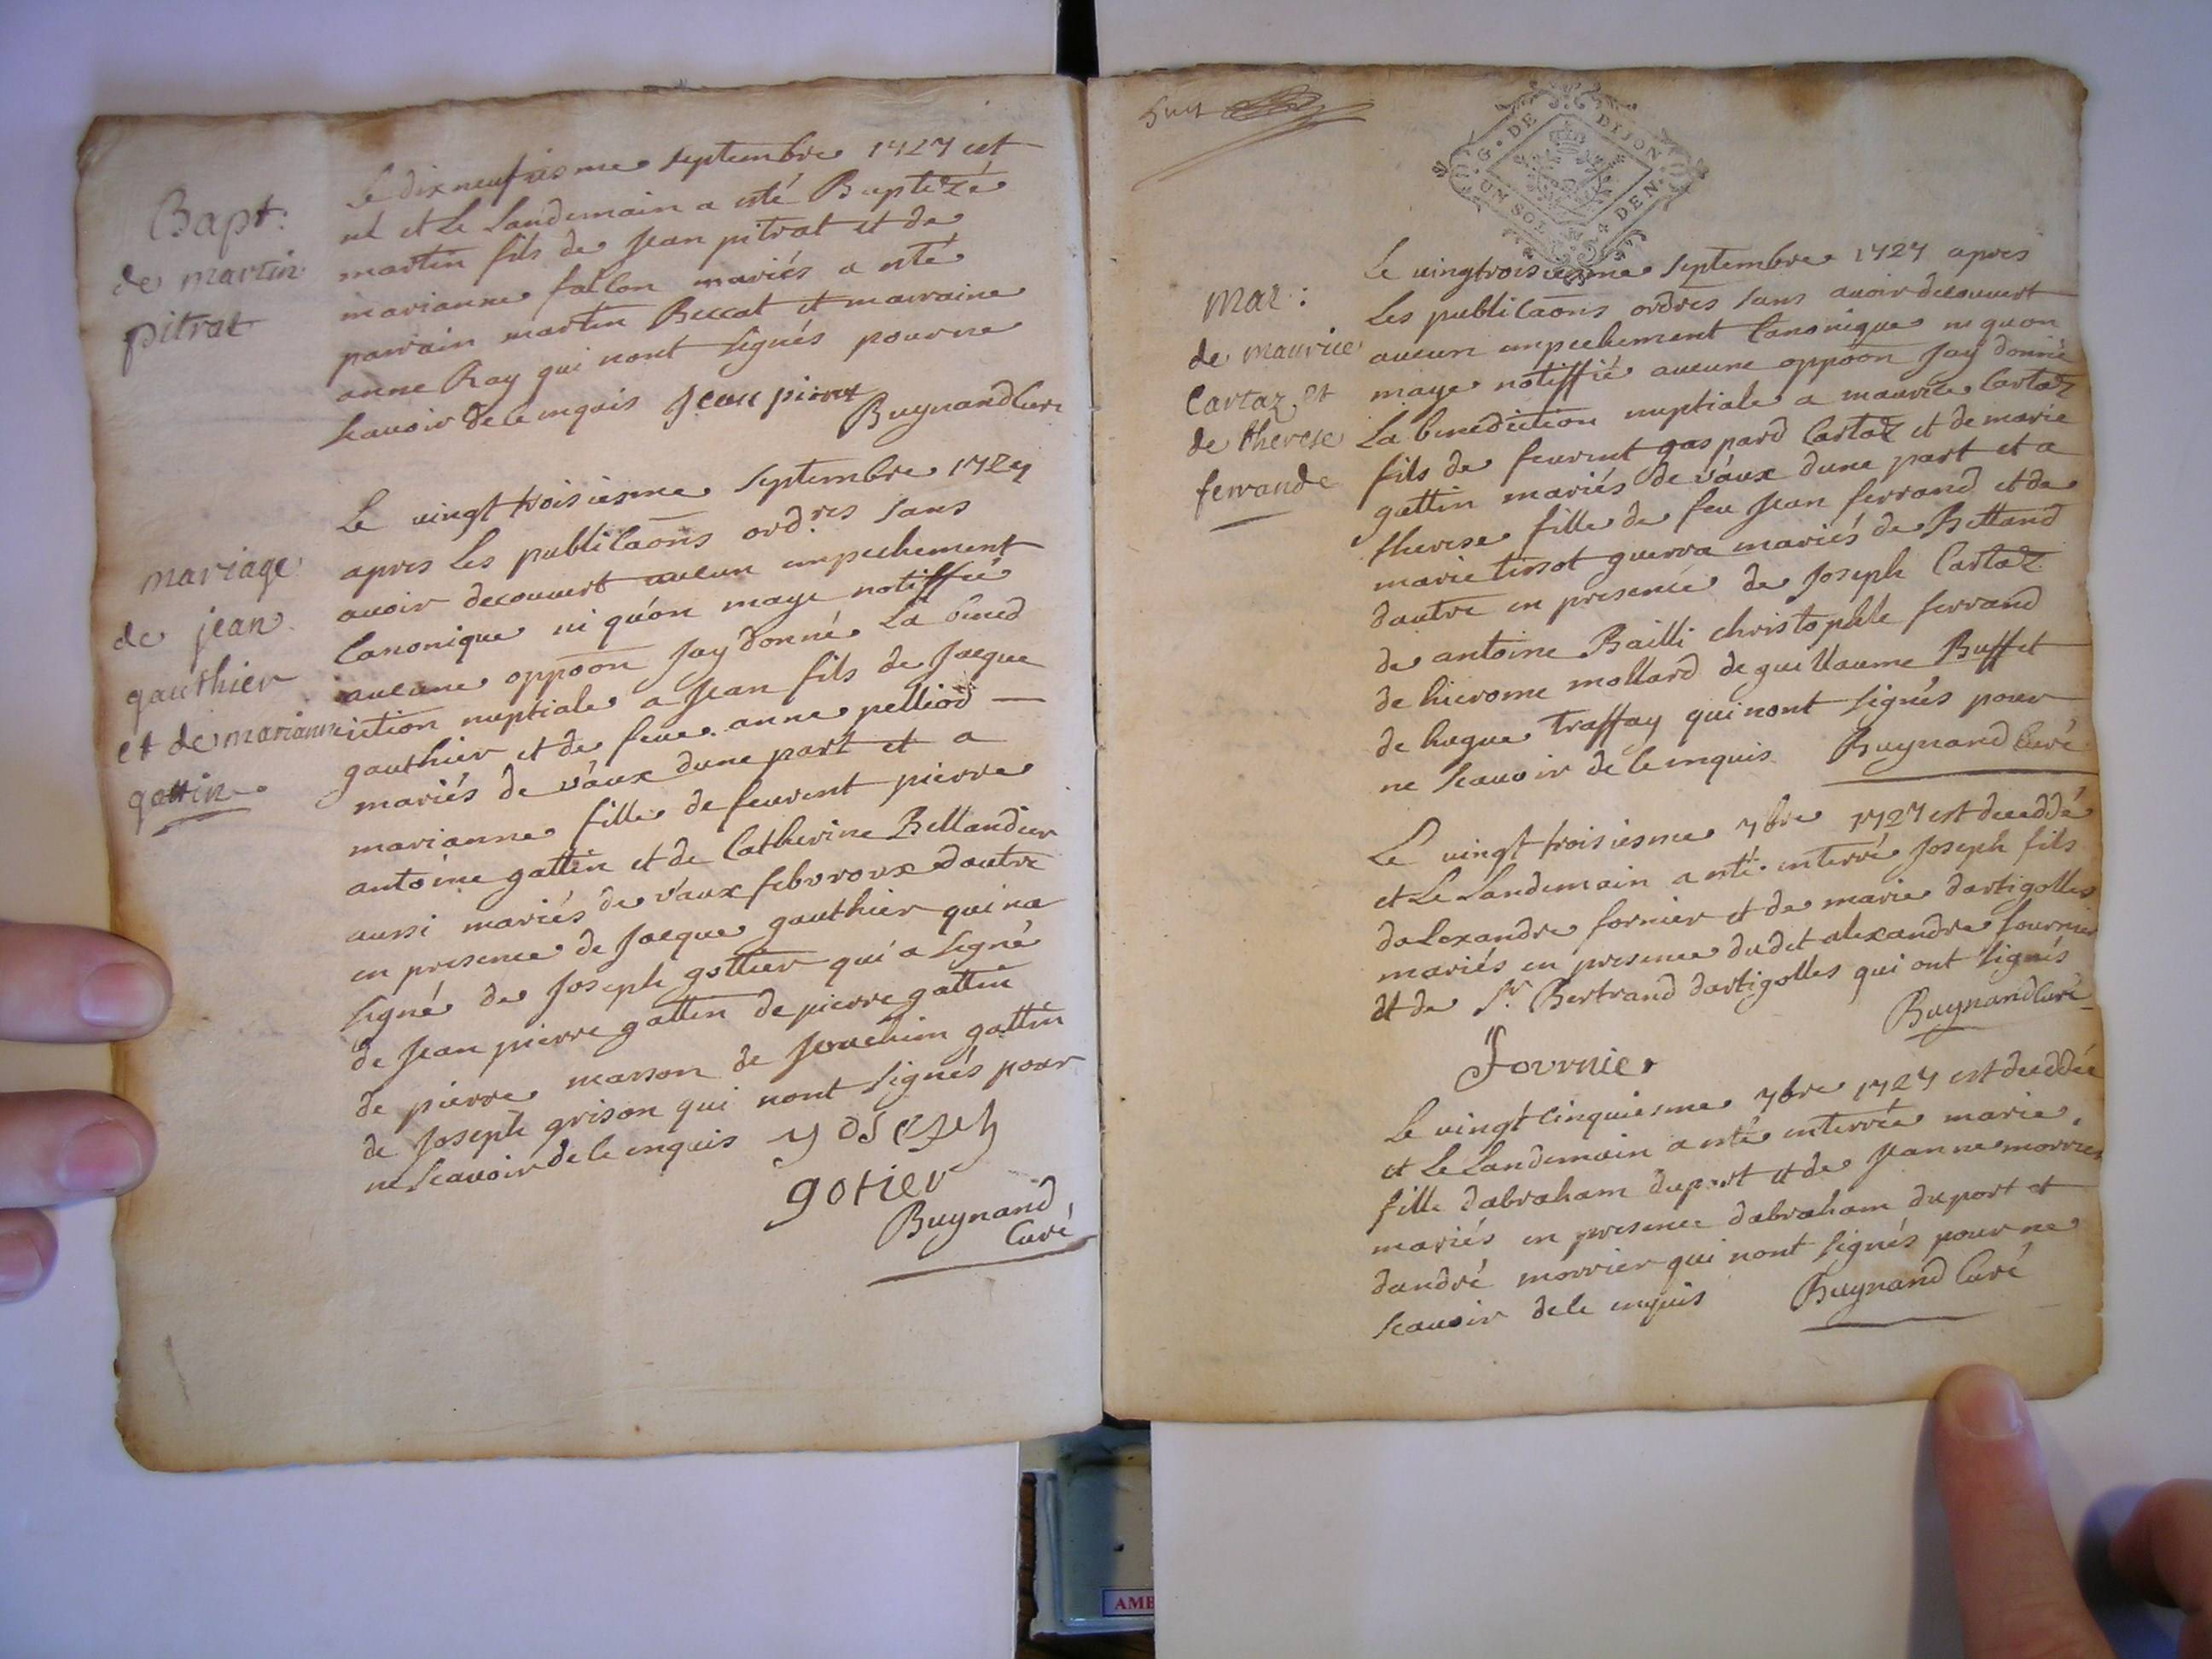 Bapt:
de martin
pitrat
Le dixneufviesme septembre 1727 est
né et Le Landemain a esté Baptizé
martin fils de Jean pitrat et de
marianne fallon mariés a esté
parrain martin Beccat et marraine
anne Ray qui nont signés pour ne
scavoir de ce enquis Jean pitrat
Buynand Curé
mariage
de jean
gauthier
et de marianne
gottin
Le vingt troisiesme septembre 1727
apres Les publicaõns ord.res sans
avoir decouvert aucun empechement
Canonique ni qu'on maye notiffié
aucune oppoõn Jay donné La bened
iction nuptiale a Jean fils de Jacque
gauthier et de feue anne pelliod
mariés de vaux dune part et a
marianne fille de feurent pierre
antoine gottin et de Catherine Billandier
aussi mariés de vaux febvroux dautre
en presence de Jacque gauthier qui na
signé de Joseph gottier qui a signé
de Jean pierre gottin de pierre gottin
de pierre masson de Jouachim gottin
de Joseph grison qui nont signés pour
ne scavoir de ce enquis yosezeh
gotier
Buynand
Curé
G. DE DIJON
UN SOL 4 DEN.
mar:
de maurice
Cartaz et
de therese
ferrande
Le vingtroisiesme septembre 1727 apres
Les publicaõns ordres sans avoir decouvert
aucun empechement Canonique ni quon
maye notiffié aucune oppoõn Jay donné
La benediction nuptiale a maurice Cartaz
fils de feurent gaspard Cartaz et de marie
gottin mariés de vaux dune part et a
therese fille de feu Jean ferrand et de
marie tissot guerra mariés de Bettand
dautre en presence de Joseph Cartaz
de antoine Bailli christophle ferrand
de hierome mollard de guillaume Buffet
de hugue Traffay qui nont signés pour
ne scavoir de ce enquis Buynand Curé
Le vingt troisiesme 7bre 1727 est deceddé
et Le Landemain a esté enterré Joseph fils
dalexandre fornier et de marie dartigolles
mariés en presence dudit alexandre fournier
et de Sr. Bertrand dartigolles qui ont signés
Buynand Curé
Fournier
Le vingt cinquiesme 7bre 1727 est deceddée
et Le Landemain a esté enterrée marie
fille dabraham duport et de Jeanne morrier
mariés en presence dabraham duport et
dandré morrier qui nont signés pour ne
scavoir de ce enquis Buynand Curé
AME